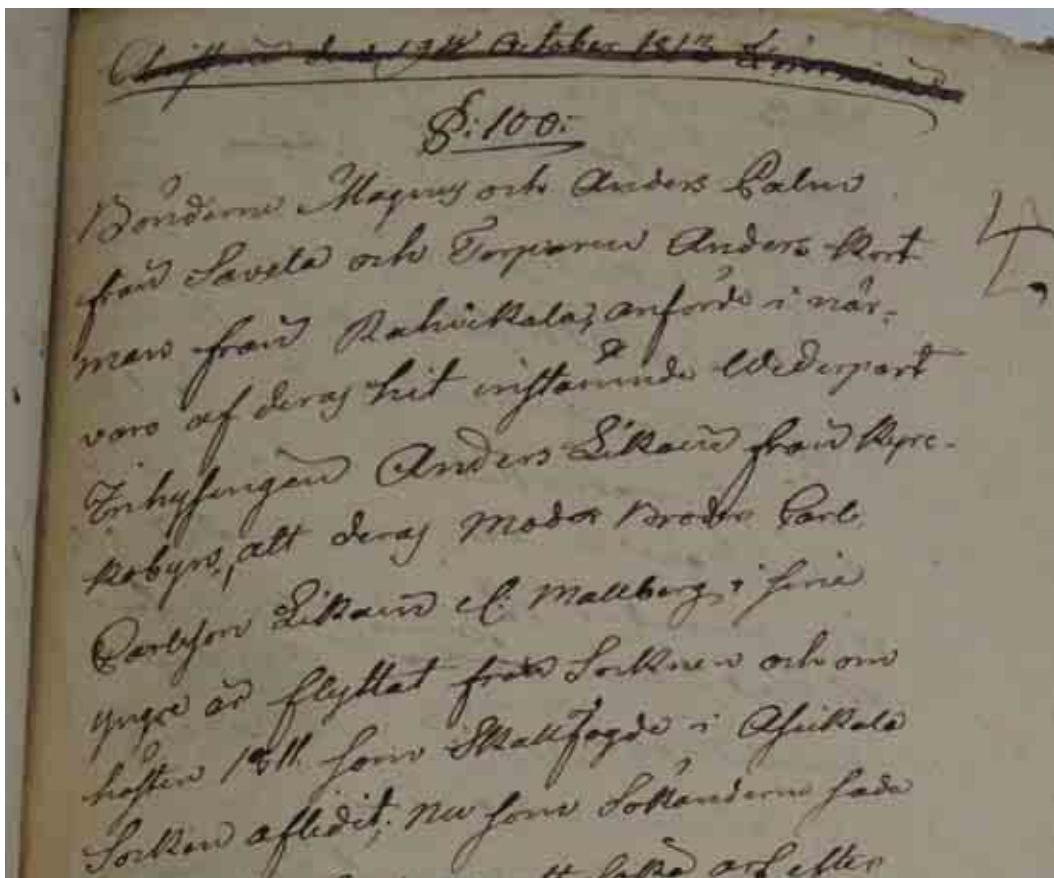 den 19de October 1812
§: 100:
Bönderne Magnus och Anders Palm
från Savela och Torparen Anders Kort
man från Kahvikala, anförde i när-
varo af deras hit instämnde Wederpart
Inhysingen Anders Likain från Kyre-
kobyn, att deras Moders Broder Carl
Carlsson Likain el. Mallberg, i sine
yngre år flyttat från Socknen och om
hösten 1811 som Skallfogde i Asikala
Socken aflidit; nu som Sökanderne hade
arf efter